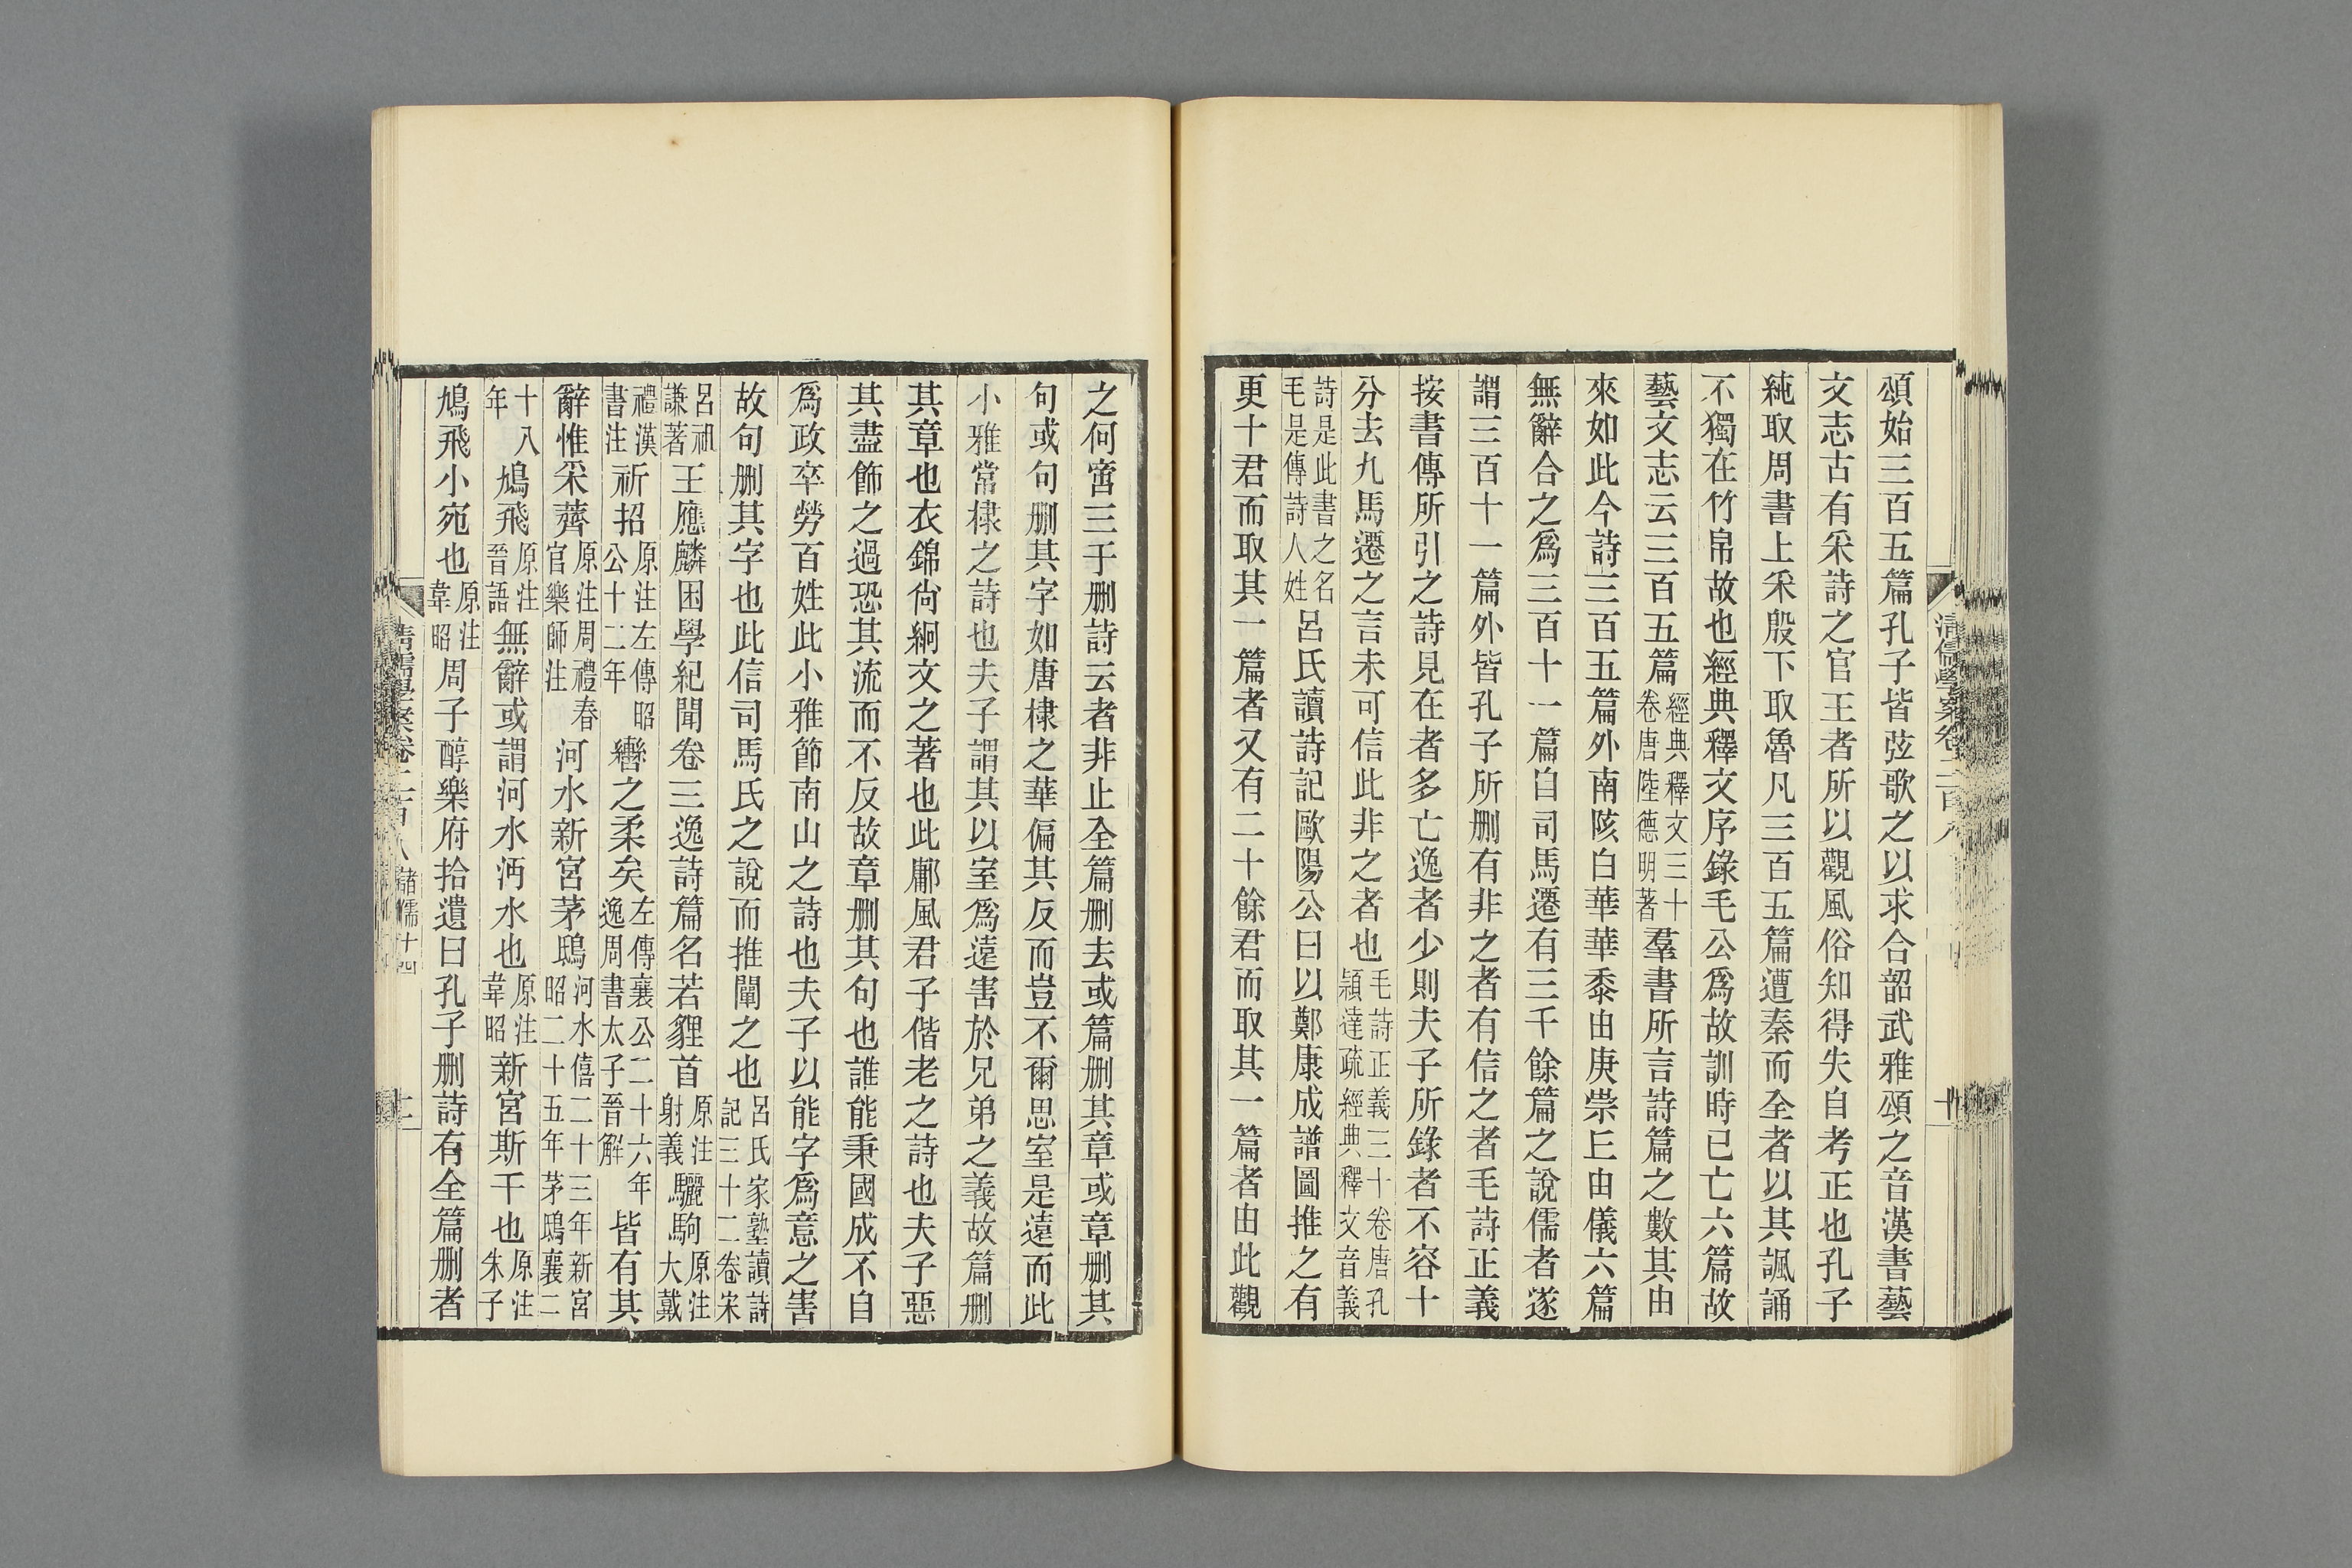 頌始三百五篇孔子皆弦歌之以求合韶武雅頌之音漢書藝
文志古有采詩之官王者所以觀風俗知得失自考正也孔子
純取周書上采殷下取魯凡三百五篇遭秦而全者以其諷誦
不獨在竹帛故也經典釋文序錄毛公爲故訓時已亡六篇故
藝文志云三百五篇經典釋文三十卷唐陸德明著羣書所言詩篇之數其由
來如此今詩三百五篇外南陔白華華黍由庚崇丘由儀六篇
無辭合之爲三百十一篇自司馬遷有三千餘篇之說儒者遂
謂三百十一篇外皆孔子所刪有非之者有信之者毛詩正義
按書傳所引之詩見在者多亡逸者少則夫子所錄者不容十
分去九馬遷之言未可信此非之者也毛詩正義三十卷唐孔穎達疏經典釋文音義
詩是此書之名毛是傳詩人姓呂氏讀詩記歐陽公曰以鄭康成譜圖推之有
更十君而取其一篇者又有二十餘君而取其一篇者由此觀
清儒學案卷二百八
十
之何啻三千刪詩云者非止全篇刪去或篇刪其章或章刪其
句或句刪其字如唐棣之華偏其反而豈不爾思室是遠而此
小雅常棣之詩也夫子謂其以室爲遠害於兄弟之義故篇刪
其章也衣錦尙絅文之著也此鄘風君子偕老之詩也夫子惡
其盡飾之過恐其流而不反故章刪其句也誰能秉國成不自
爲政卒勞百姓此小雅節南山之詩也夫子以能字爲意之害
故句刪其字也此信司馬氏之說而推闡之也呂氏家塾讀詩記三十二卷宋
呂祖謙著王應麟困學紀聞卷三逸詩篇名若貍首原注射義驪駒原注大戴
禮漢書注祈招原注左傳昭公十二年轡之柔矣左傳襄公二十六年逸周書太子晉解皆有其
辭惟采薺原注周禮春官樂師注河水新宮茅鴟河水僖二十三年新宮昭二十五年茅鴟襄二
十八年鳩飛原注晉語無辭或謂河水沔水也原注韋昭新宮斯干也原注朱子
鳩飛小宛也原注韋昭周子醇樂府拾遺曰孔子刪詩有全篇刪者
清儒學案卷二百八
諸儒十四